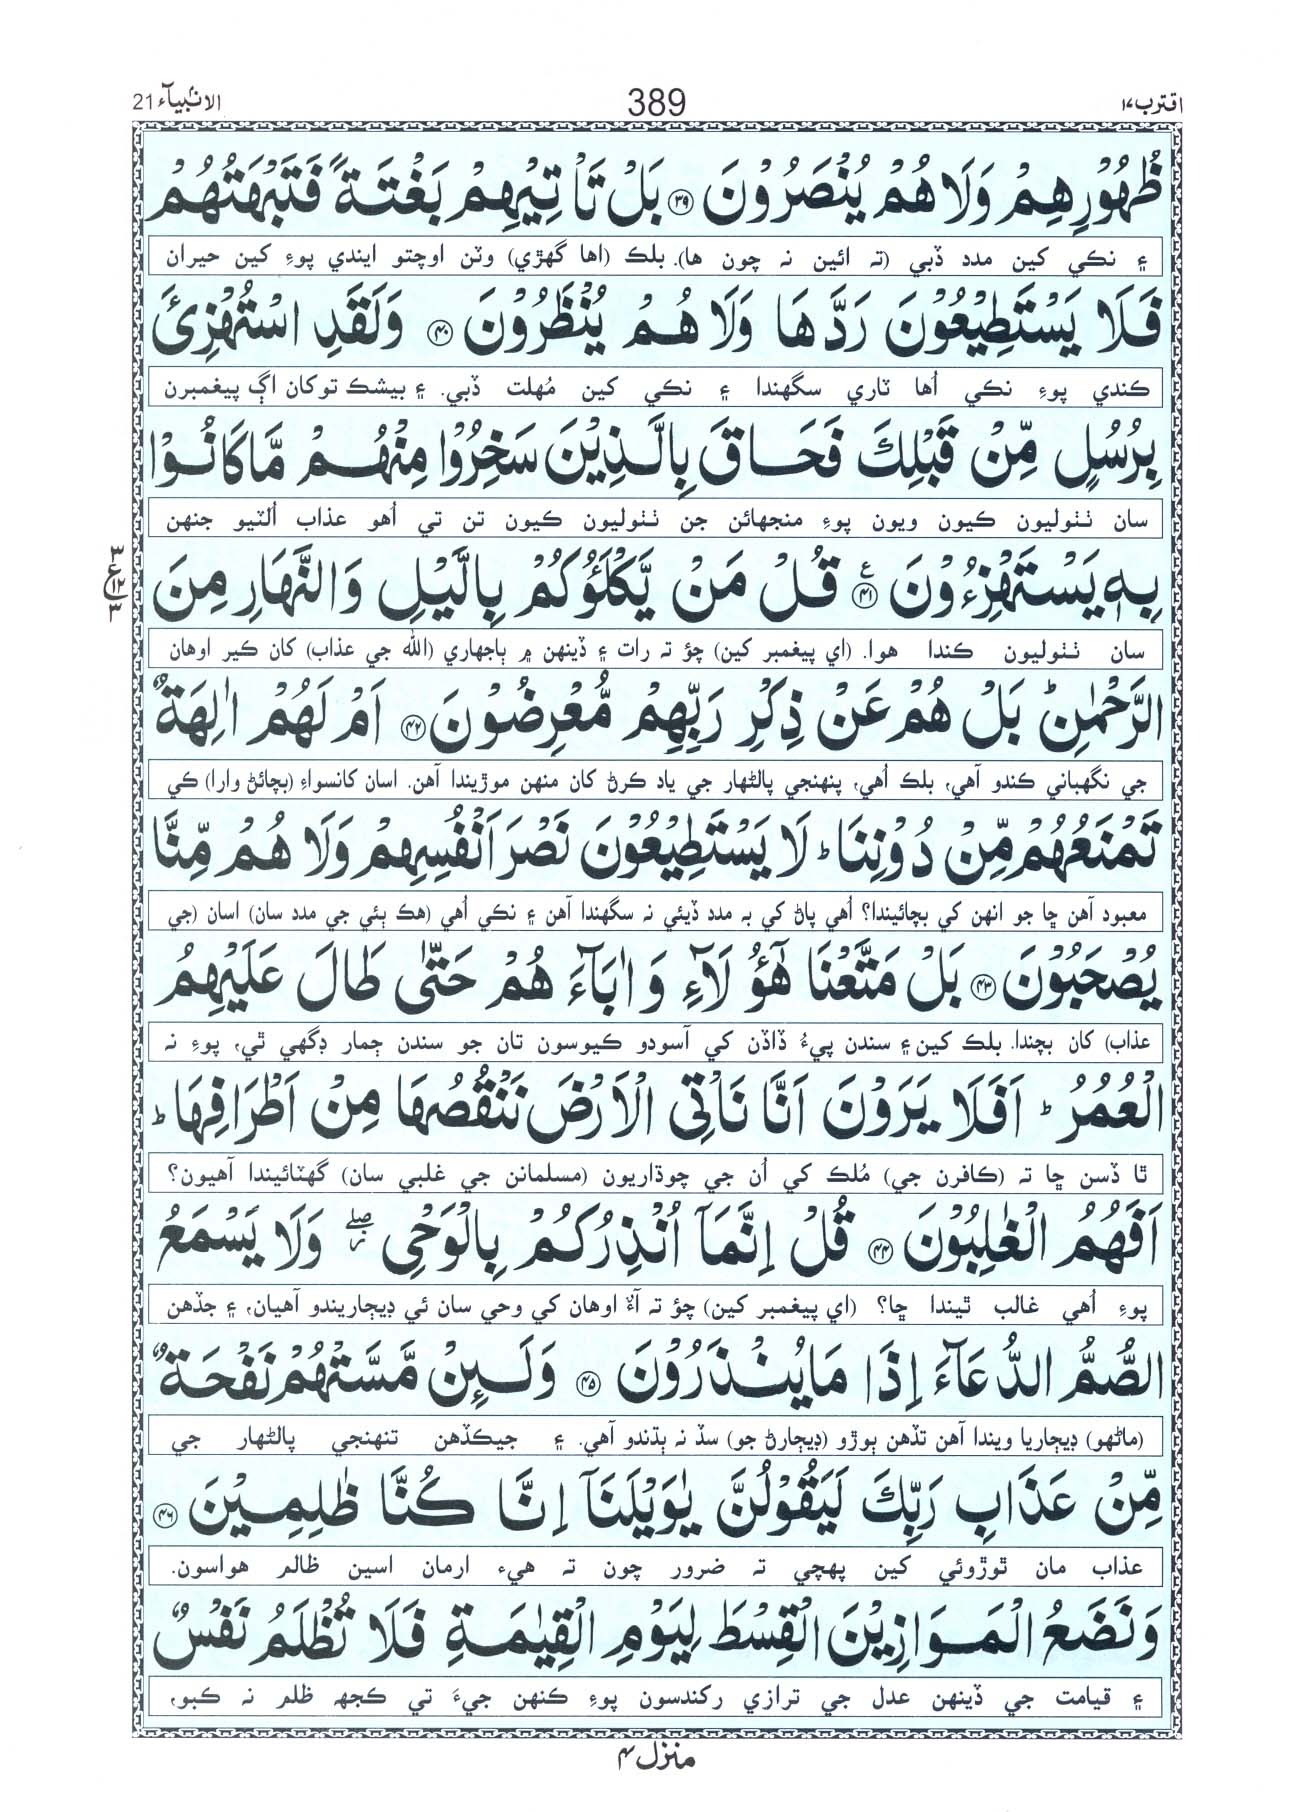 اقترب ١٧
389
الانبیآء 21
ظُهُوْرِهِمْ وَلَا هُمْ يُنْصَرُوْنَ ۝٣٩ بَلْ تَاْتِيْهِمْ بَغْتَةً فَتَبْهَتُهُمْ
۽ نڪي کين مدد ڏبي (ته ائين نه چون ها). بلڪ (اها گهڙي) وٽن اوچتو ايندي پوءِ کين حيران
فَلَا يَسْتَطِيْعُوْنَ رَدَّهَا وَلَا هُمْ يُنْظَرُوْنَ ۝٤٠ وَلَقَدِ اسْتُهْزِئَ
ڪندي پوءِ نڪي اُها ٽاري سگهندا ۽ نڪي کين مُهلت ڏبي. ۽ بيشڪ توکان اڳ پيغمبرن
بِرُسُلٍ مِّنْ قَبْلِكَ فَحَاقَ بِالَّذِيْنَ سَخِرُوْا مِنْهُمْ مَّا كَانُوْا
سان ٺٺوليون ڪيون ويون پوءِ منجهائن جن ٺٺوليون ڪيون تن تي اُهو عذاب اُلٽيو جنهن
بِهٖ يَسْتَهْزِءُوْنَ ۝٤١ ع قُلْ مَنْ يَّكْلَؤُكُمْ بِالَّيْلِ وَالنَّهَارِ مِنَ
سان ٺٺوليون ڪندا هوا. (اي پيغمبر کين) چؤ ته رات ۽ ڏينهن ۾ ٻاجهاري (الله جي عذاب) کان ڪير اوهان
الرَّحْمٰنِ ؕ بَلْ هُمْ عَنْ ذِكْرِ رَبِّهِمْ مُّعْرِضُوْنَ ۝٤٢ اَمْ لَهُمْ اٰلِهَةٌ
جي نگهباني ڪندو آهي، بلڪ اُهي، پنهنجي پالڻهار جي ياد ڪرڻ کان منهن موڙيندا آهن. اسان کانسواءِ (بچائڻ وارا) کي
تَمْنَعُهُمْ مِّنْ دُوْنِنَا ؕ لَا يَسْتَطِيْعُوْنَ نَصْرَ اَنْفُسِهِمْ وَلَا هُمْ مِّنَّا
معبود آهن ڇا جو انهن کي بچائيندا؟ اُهي پاڻ کي به مدد ڏيئي نه سگهندا آهن ۽ نڪي اُهي (هڪ ٻئي جي مدد سان) اسان (جي
يُصْحَبُوْنَ ۝٤٣ بَلْ مَتَّعْنَا هٰٓؤُلَآءِ وَاٰبَآءَهُمْ حَتّٰى طَالَ عَلَيْهِمُ
عذاب) کان بچندا. بلڪ کين ۽ سندن پيءُ ڏاڏن کي آسودو ڪيوسون تان جو سندن ڄمار ڊگهي ٿي، پوءِ نه
الْعُمُرُ ؕ اَفَلَا يَرَوْنَ اَنَّا نَاْتِى الْاَرْضَ نَنْقُصُهَا مِنْ اَطْرَافِهَا ؕ
ٿا ڏسن ڇا ته (ڪافرن جي) مُلڪ کي اُن جي چوڌاريون (مسلمانن جي غلبي سان) گهٽائيندا آهيون؟
اَفَهُمُ الْغٰلِبُوْنَ ۝٤٤ قُلْ اِنَّمَآ اُنْذِرُكُمْ بِالْوَحْىِ ۖ وَلَا يَسْمَعُ
پوءِ اُهي غالب ٿيندا ڇا؟ (اي پيغمبر کين) چؤ ته آءٌ اوهان کي وحي سان ئي ڊيڄاريندو آهيان، ۽ جڏهن
الصُّمُّ الدُّعَآءَ اِذَا مَا يُنْذَرُوْنَ ۝٤٥ وَلَئِنْ مَّسَّتْهُمْ نَفْحَةٌ
(ماڻهو) ڊيڄاريا ويندا آهن تڏهن ٻوڙو (ڊيڄارڻ جو) سڏ نه ٻڌندو آهي. ۽ جيڪڏهن تنهنجي پالڻهار جي
مِّنْ عَذَابِ رَبِّكَ لَيَقُوْلُنَّ يٰوَيْلَنَآ اِنَّا كُنَّا ظٰلِمِيْنَ ۝٤٦
عذاب مان ٿوڙوئي کين پهچي ته ضرور چون ته هيء ارمان اسين ظالم هواسون.
وَنَضَعُ الْمَوَازِيْنَ الْقِسْطَ لِيَوْمِ الْقِيٰمَةِ فَلَا تُظْلَمُ نَفْسٌ
۽ قيامت جي ڏينهن عدل جي ترازي رکندسون پوءِ ڪنهن جيءَ تي ڪجهه ظلم نه ڪبو،
منزل ۴